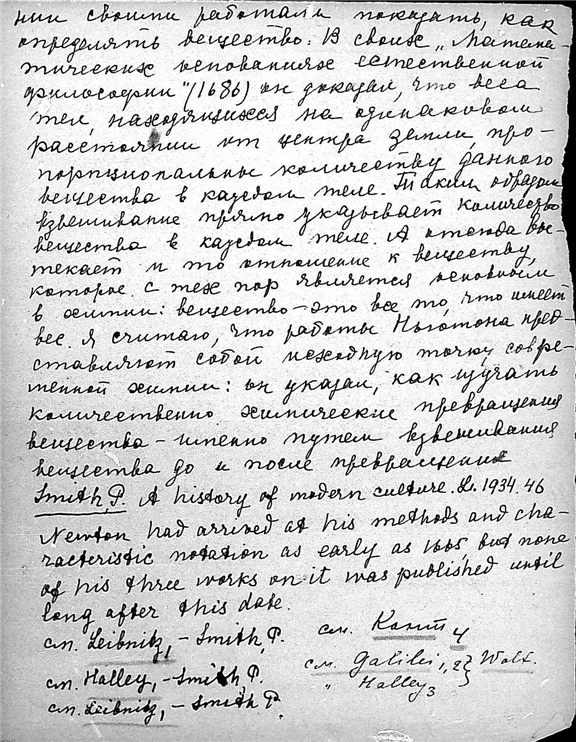 нии своими работами показать, как
определять вещество. В своих „Матема-
тических основаниях естественной
философии" (1686) он доказал, что веса
тел, находящихся на одинаковом
расстоянии от центра земли, про-
порциональны количеству данного
вещества в каждом теле. Таким образом
взвешивание прямо указывает количество
вещества в каждом теле. А отсюда вы-
текает и то отношение к веществу,
которое с тех пор является основным
в химии: вещество – это все то, что имеет
вес. Я считаю, что работы Ньютона пред-
ставляют собой исходную точку совре-
менной химии: он указал, как изучать
количественно химические превращения
вещества – именно путем взвешивания
вещества до и после превращения
Smith, P. A history of modern culture. L. 1934. 46
Newton had arrived at his methods and cha-
racteristic notation as early as 1665, but none
of his three works on it was published until
long after this date.
см. Leibnitz, – Smith, P. см. Кант 4
см. Halley, – Smith, P. см. Galilei, 2 } Wolf.
см. Leibnitz, – Smith P. " Halley 3